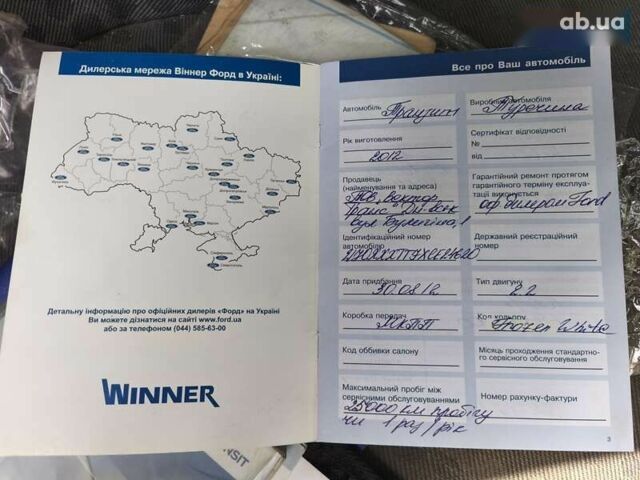 ab.ua
Дилерська мережа Віннер Форд в Україні:
Детальну інформацію про офіційних дилерів «Форд» на Україні
Ви можете дізнатися на сайті www.ford.ua
або за телефоном (044) 585-63-00
WINNER
Все про Ваш автомобіль
Автомобіль Транзит
Виробник автомобіля
Туреччина
Рік виготовлення
2012
Сертифікат відповідності
№
від
Продавець
(найменування та адреса)
вул
Гарантійний ремонт протягом
гарантійного терміну експлуа-
тації виконується
оф дилером Ford
Ідентифікаційний номер
автомобілю
Державний реєстраційний
номер
Дата придбання
30.08.12
Тип двигуну
2.2
Коробка передач
МКПП
Код кольору
Frozen White
Код оббивки салону
Місяць проходження стандартно-
го сервісного обслуговування
Максимальний пробіг між
сервісними обслуговуваннями
25000 км пробігу
чи 1 раз / рік
Номер рахунку-фактури
3
NSIT